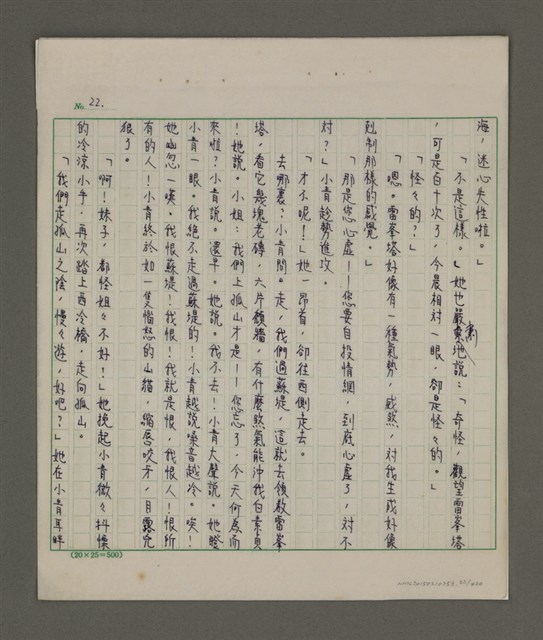 No. 22.
海,迷心失性啦。」
「不是這樣。」她也嚴肅地說:「奇怪,觀望雷峯塔
,可是百千次了,今晨相對一眼,卻是怪怪的。」
「怪怪的?」
「嗯。雷峯塔好像有一種氣勢,威煞,對我生成好像
剋制那樣的感覺。」
「那是您心虛——您要自投情網,到底心虛了,對不
對?」小青趁勢進攻。
「才不呢!」她一昂首,卻往西側走去。
去哪裏?小青問。走,我們過蘇堤,這就去後敘雷峯
塔,看它幾塊老磚,六片頹牆,有什麼煞氣能沖我白素貞
!她說。小姐:我們上孤山才是——您忘了,今天何處而
來啦?小青說。還早。她說。我不去!小青大聲說。她瞪
小青一眼。我絕不走過蘇堤的!小青越說嗓音越冷。唉!
她幽忽一嘆。我恨蘇堤!我恨!我就是恨,我恨人!恨所
有的人!小青終於如一隻惱怒的山貓,縮唇咬牙,目露兇
狠了。
「啊!妹子,都怪姐々不好!」她挽起小青微々抖慄
的冷涼小手,再次踏上西冷橋,走向孤山。
「我們走孤山之陰,慢々遊,好吧?」她在小青耳畔
(20×25=500)